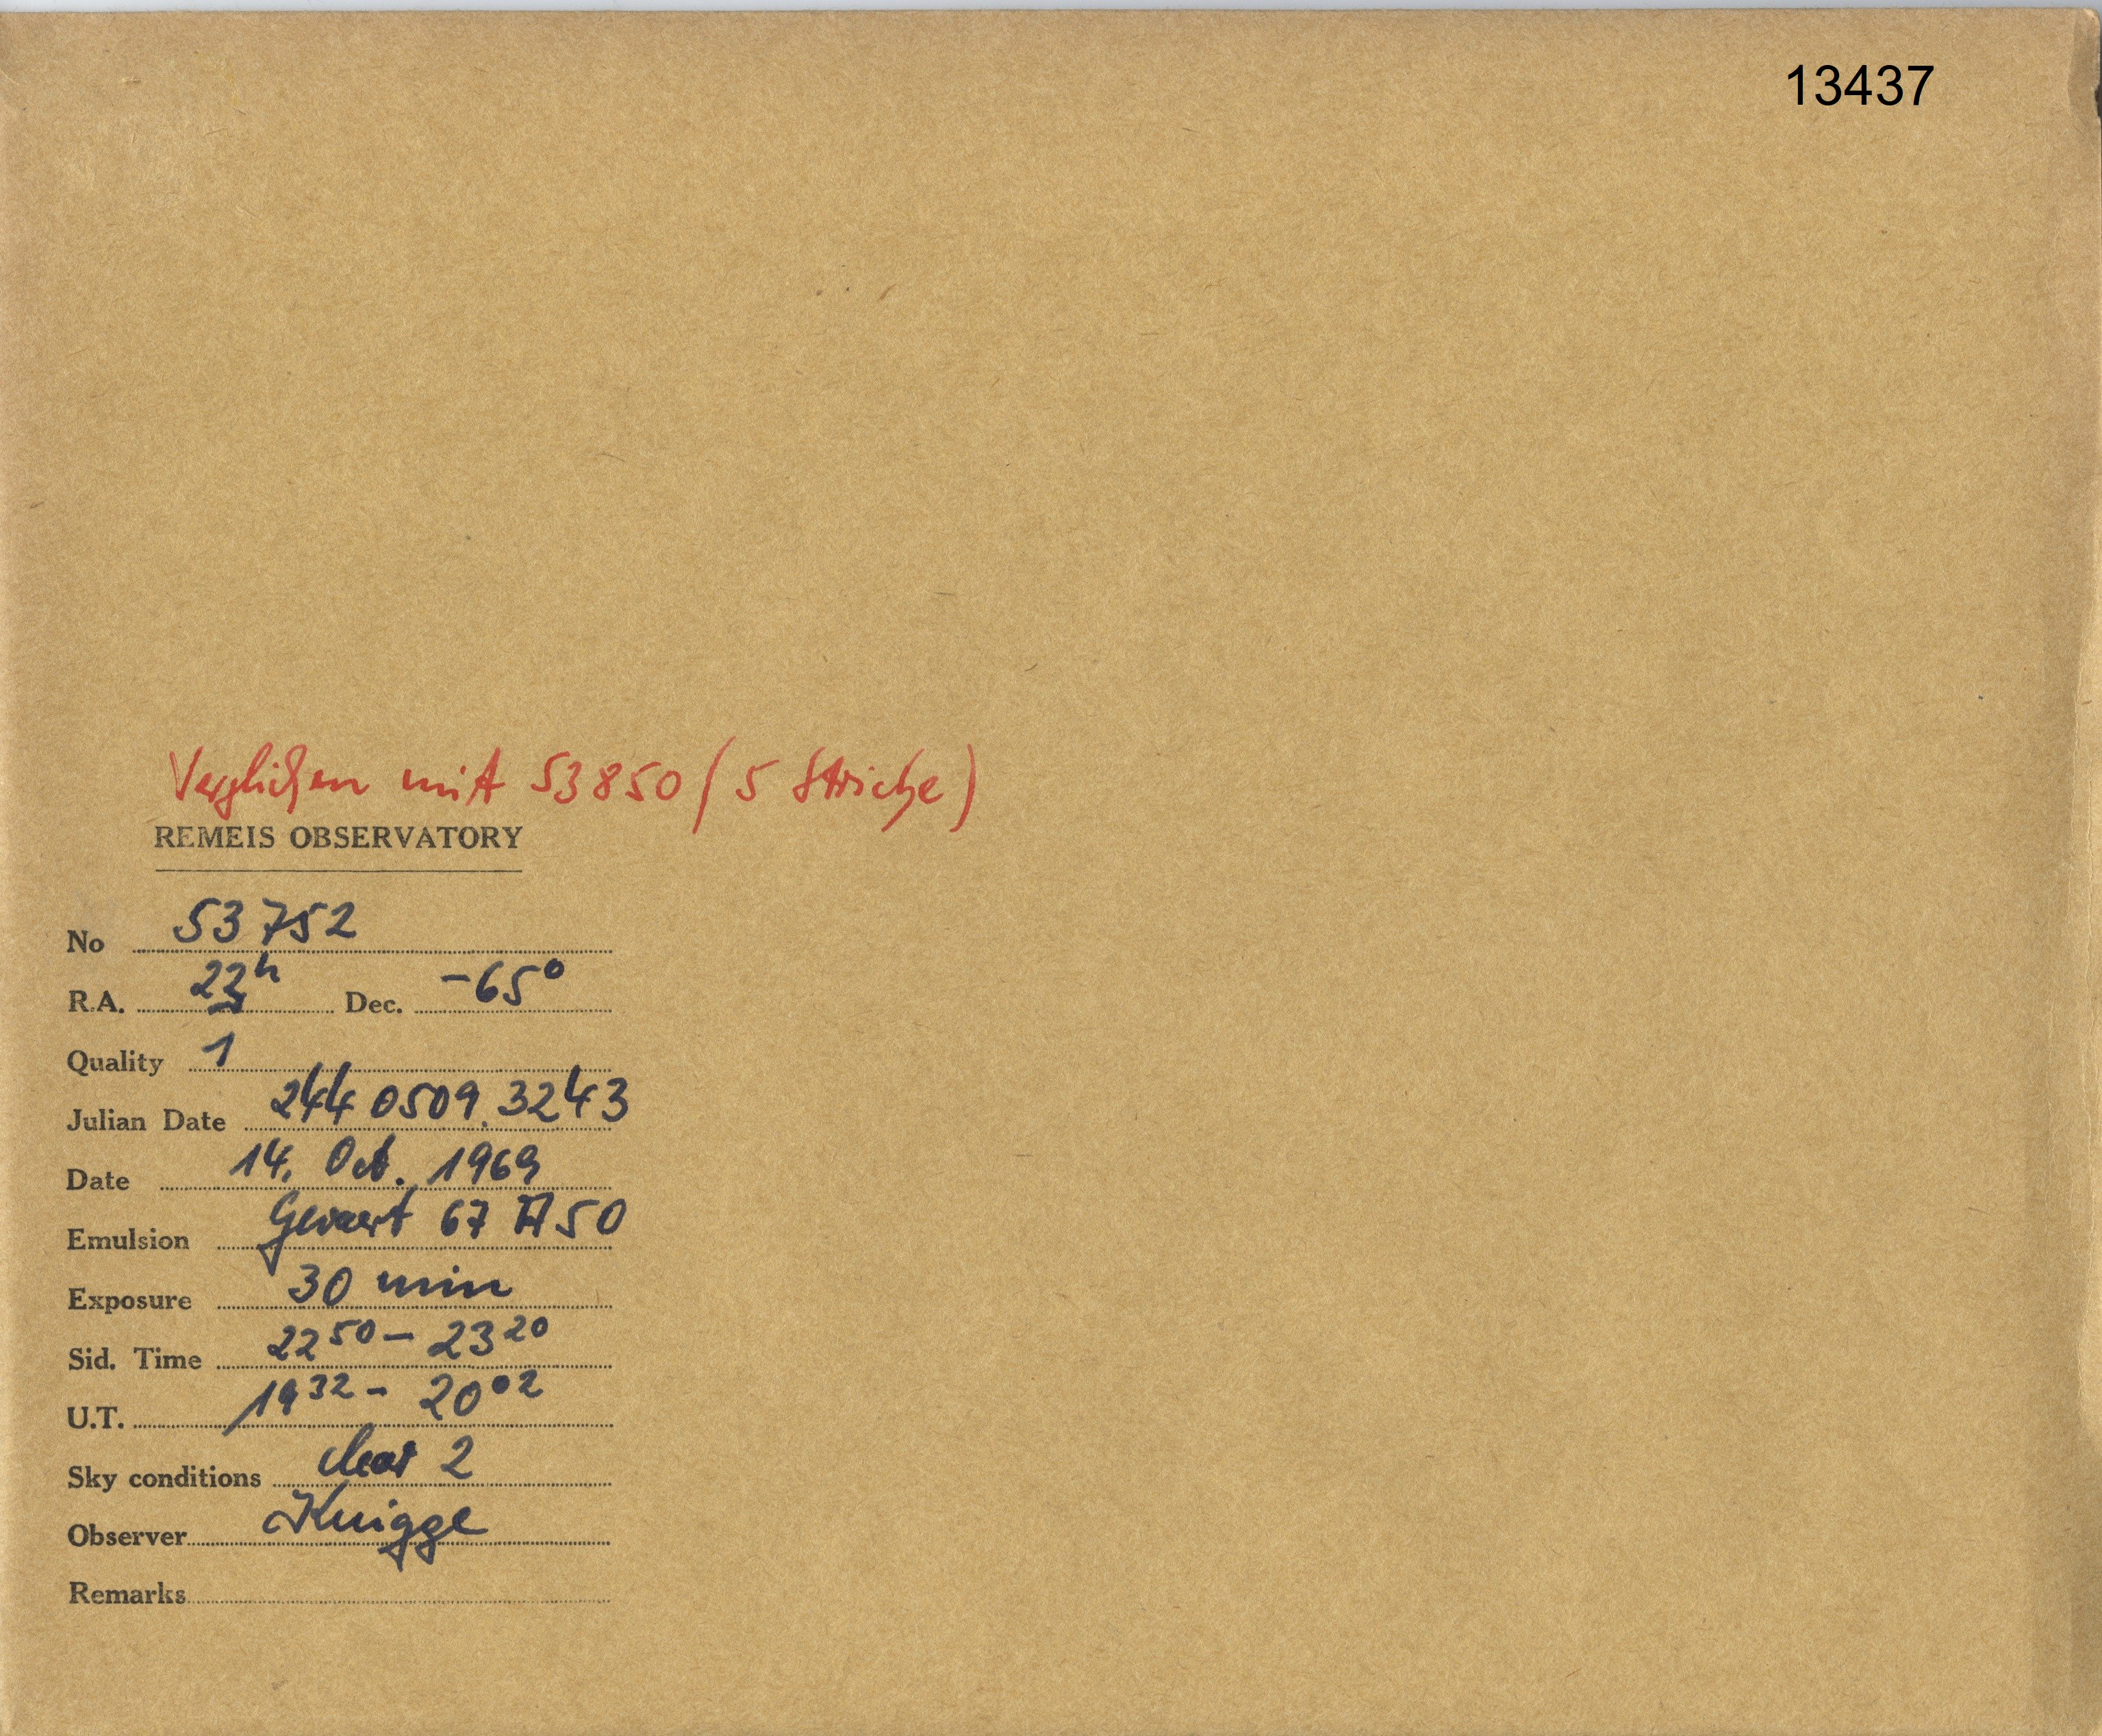 13437
Verglichen mit 53850 (5 Striche)
REMEIS OBSERVATORY
No 53752
R.A. 22h Dec. -65°
Quality 1
Julian Date 244 0509.3243
Date 14. Oct. 1969
Emulsion Gevaert 67 A 50
Exposure 30 min
Sid. Time 22 50 - 23 20
U.T. 19 32 - 20 02
Sky conditions clear 2
Observer Knigge
Remarks